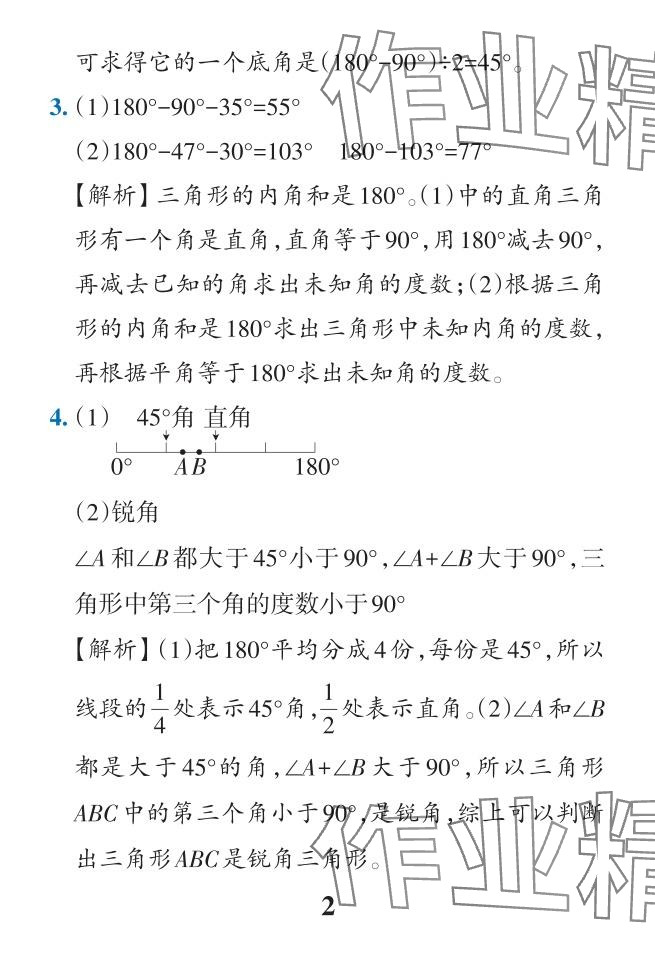 可求得它的一个底角是(180°-90°)÷2=45°。
3. (1)180°-90°-35°=55°
(2)180°-47°-30°=103° 180°-103°=77°
【解析】三角形的内角和是180°。(1)中的直角三角
形有一个角是直角,直角等于90°,用180°减去90°,
再减去已知的角求出未知角的度数;(2)根据三角
形的内角和是180°求出三角形中未知内角的度数,
再根据平角等于180°求出未知角的度数。
4. (1) 45°角 直角
0° A B 180°
(2)锐角
∠A和∠B都大于45°小于90°,∠A+∠B大于90°,三
角形中第三个角的度数小于90°
【解析】(1)把180°平均分成4份,每份是45°,所以
线段的1/4处表示45°角,1/2处表示直角。(2)∠A和∠B
都是大于45°的角,∠A+∠B大于90°,所以三角形
ABC中的第三个角小于90°,是锐角,综上可以判断
出三角形ABC是锐角三角形。
2
作业精
作业精